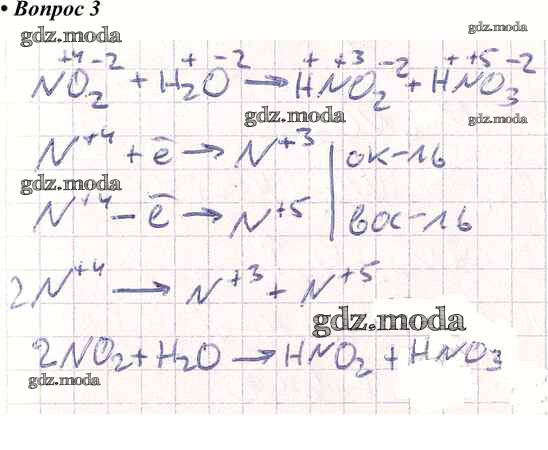 • Вопрос 3
gdz.moda
gdz.moda
+4 -2 + -2 + +3 -2 + +5 -2
NO₂ + H₂O → HNO₂ + HNO₃
gdz.moda
gdz.moda
N⁺⁴ + ē → N⁺³ | ок-ль
gdz.moda
N⁺⁴ - ē → N⁺⁵ | вос-ль
2N⁺⁴ → N⁺³ + N⁺⁵
gdz.moda
2NO₂ + H₂O → HNO₂ + HNO₃
gdz.moda